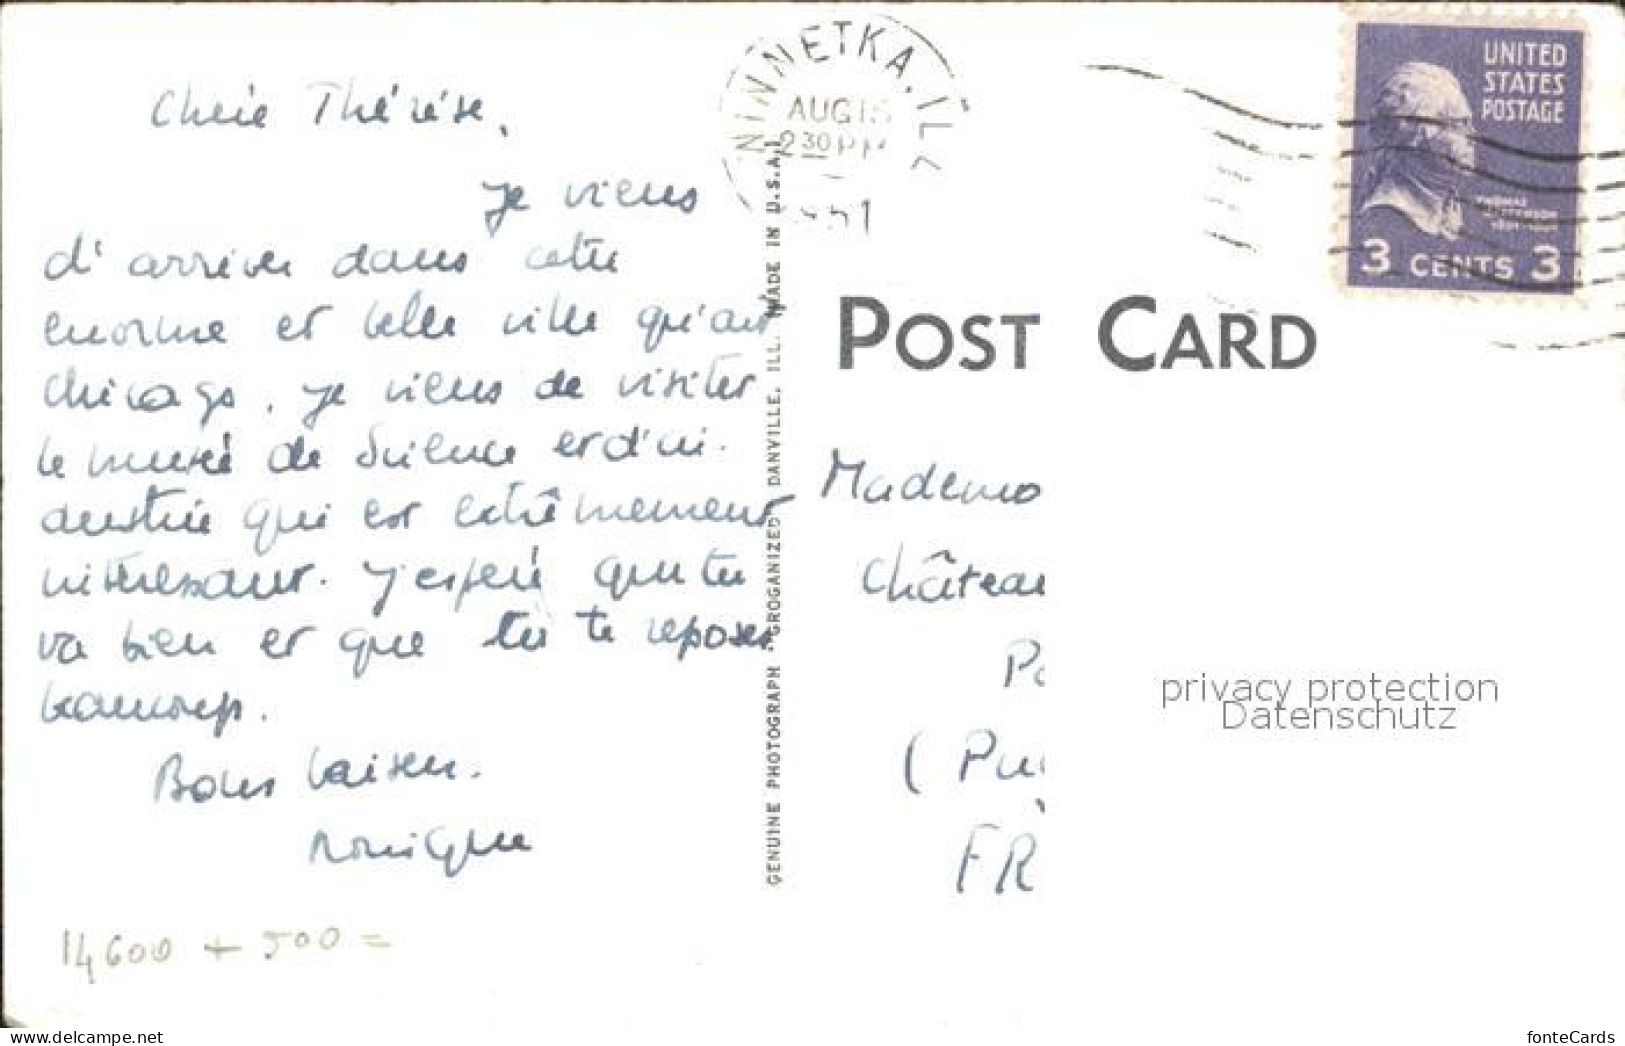 Chérie Thérèse,
Je viens
d'arriver dans cette
enorme et belle ville qu'est
chicago. Je viens de visiter
le musée de Science et d'in-
dustrie qui est extrêmement
intéressant. J'espère que tu
va bien et que tu te reposes
beaucoup.
Bons baisers.
Monique
14600 + 500 =
WINNETKA, ILL
AUG 15
2 30 PM
1951
GENUINE PHOTOGRAPH - GROGANIZED DANVILLE, ILL. (MADE IN U.S.A.)
UNITED
STATES
POSTAGE
THOMAS
JEFFERSON
3 CENTS 3
POST CARD
Mademo
Châtea
(Pu
FR
privacy protection
Datenschutz
delcampe.net
fonteCards